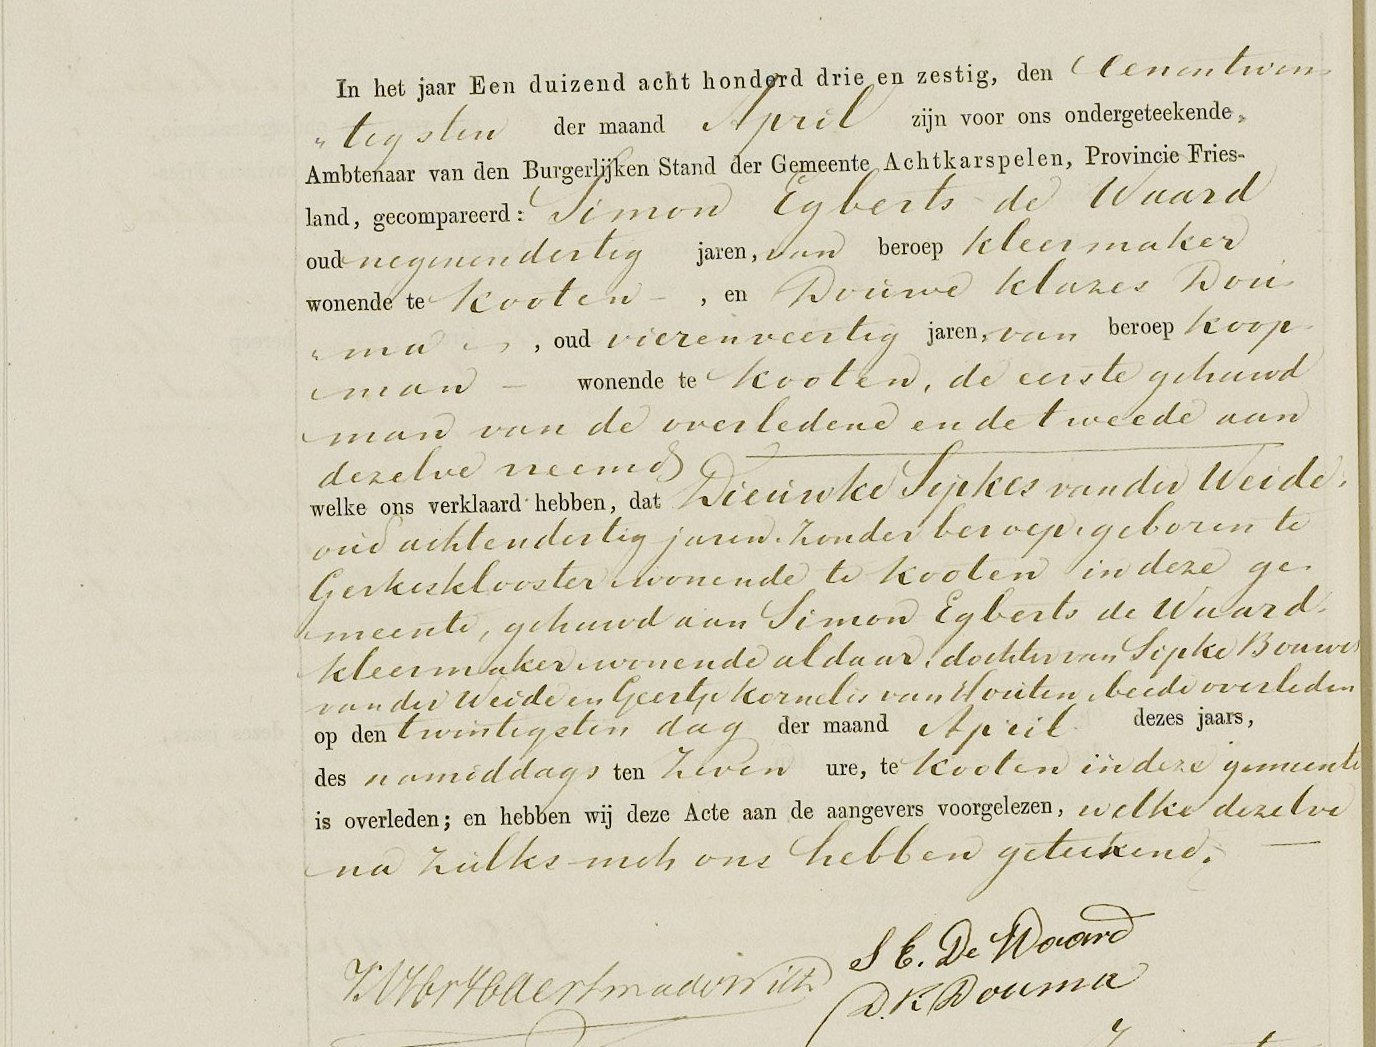 In het jaar Een duizend acht honderd drie en zestig, den eenentwin-
„tigsten der maand April zijn voor ons ondergeteekende,
Ambtenaar van den Burgerlijken Stand der Gemeente Achtkarspelen, Provincie Fries-
land, gecompareerd: Simon Egberts de Waard
oud negenendertig jaren, van beroep kleermaker
wonende te Kooten – , en Douwe Klazes Dou-
„ma – , oud vierenveertig jaren, van beroep koop-
man – wonende te Kooten, de eerste gehuwd
man van de overledene en de tweede aan
dezelve vreemd
welke ons verklaard hebben, dat Dieuwke Sipkes van der Weide,
oud achtendertig jaren, zonder beroep, geboren te
Gerkesklooster wonende te Kooten in deze ge-
meente, gehuwd aan Simon Egberts de Waard
kleermaker wonende aldaar, dochter van Sipke Bouwes
van der Weide en Geertje Kornelis van Houten, beide overleden
op den twintigsten dag der maand April dezes jaars,
des namiddags ten zeven ure, te Kooten in deze gemeente
is overleden; en hebben wij deze Acte aan de aangevers voorgelezen, welke dezelve
na zulks met ons hebben geteekend. –
S E. De Waard
D. K Douma